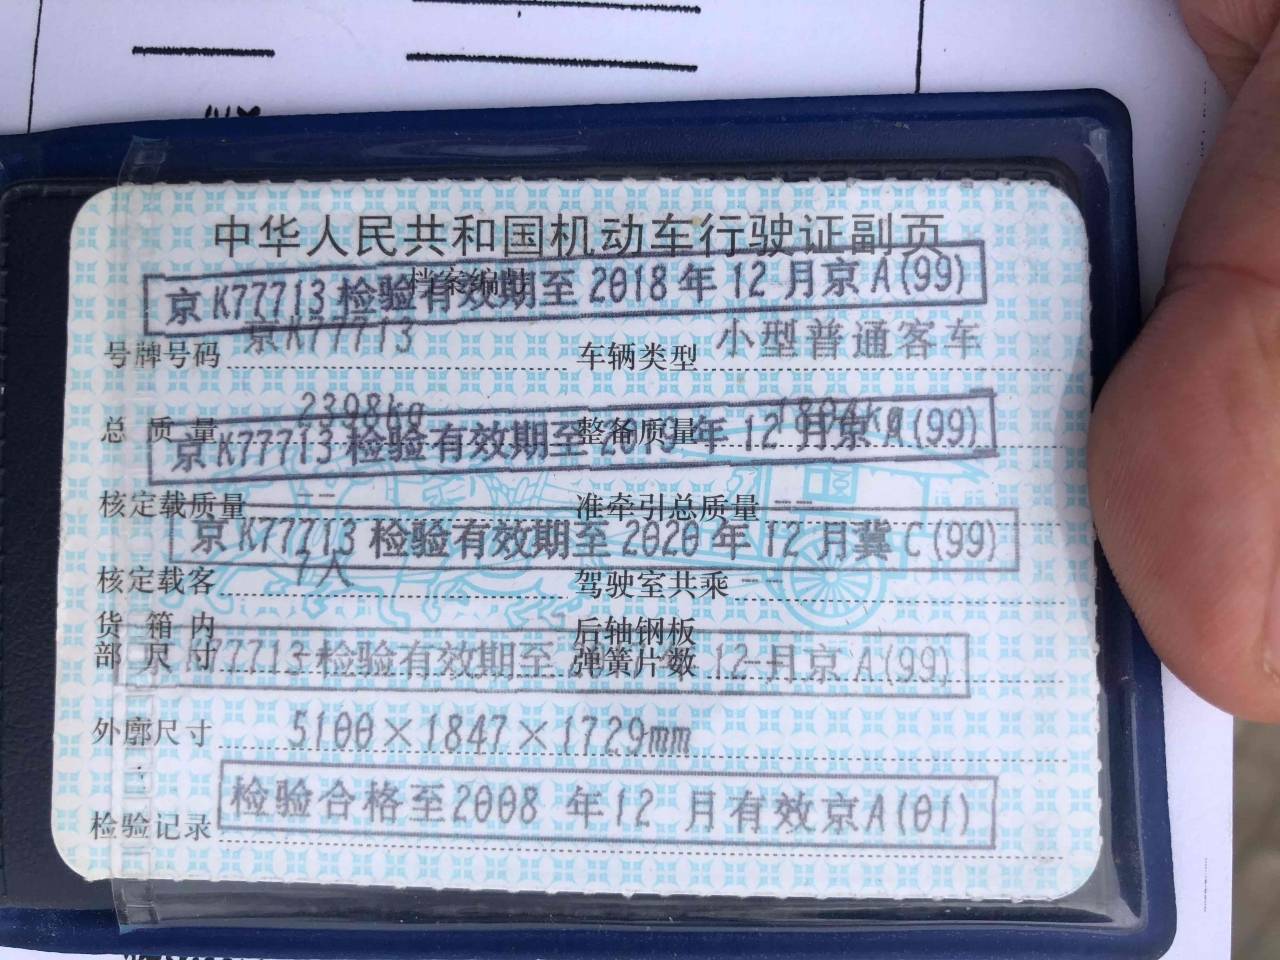 中华人民共和国机动车行驶证副页
档案编号
京K77713 检验有效期至 2018 年 12 月京 A(99)
号牌号码 京K77713 车辆类型 小型普通客车
总质量 2398kg 整备质量 1804kg
京 K77713 检验有效期至 2019 年 12 月京 A(99)
核定载质量 -- 准牵引总质量 --
京 K77713 检验有效期至 2020 年 12 月冀 C(99)
核定载客 7人 驾驶室共乘 --
货箱内部尺寸 后轴钢板弹簧片数 --
K77713 检验有效期至 12 月京 A(99)
外廓尺寸 5100×1847×1729mm
检验记录 检验合格至2008 年12 月有效京A(01)